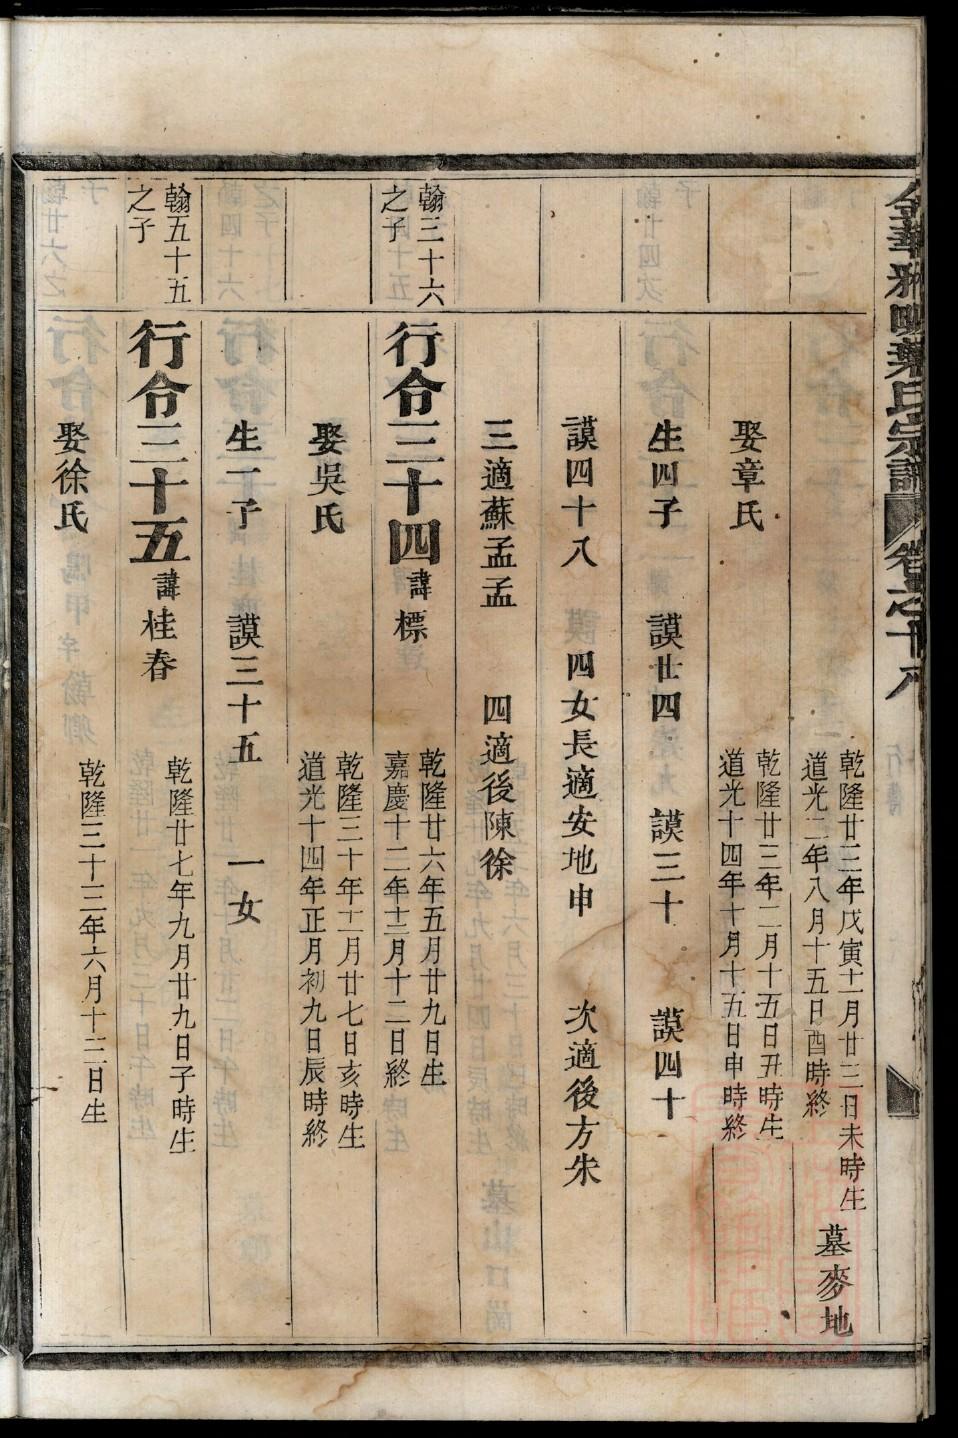 金華雅畈葉氏宗譜 卷之十八
乾隆廿三年戊寅十一月廿三日未時生 墓麥地
道光二年八月十五日酉時終
娶章氏
乾隆廿三年二月十五日丑時生
道光十四年十月十五日申時終
生四子 謨廿四 謨三十 謨四十
謨四十八 謨 四女長適安地申 次適後方朱
三適蘇孟孟 四適後陳徐
翰三十六
之子
行令三十四 諱標
乾隆廿六年五月廿九日生
嘉慶十二年十二月十二日終
娶吳氏
乾隆三十年十一月廿七日亥時生
道光十四年正月初九日辰時終
生一子 謨三十五 一女
翰五十五
之子
行令三十五 諱桂春
乾隆廿七年九月廿九日子時生
娶徐氏
乾隆三十三年六月十三日生